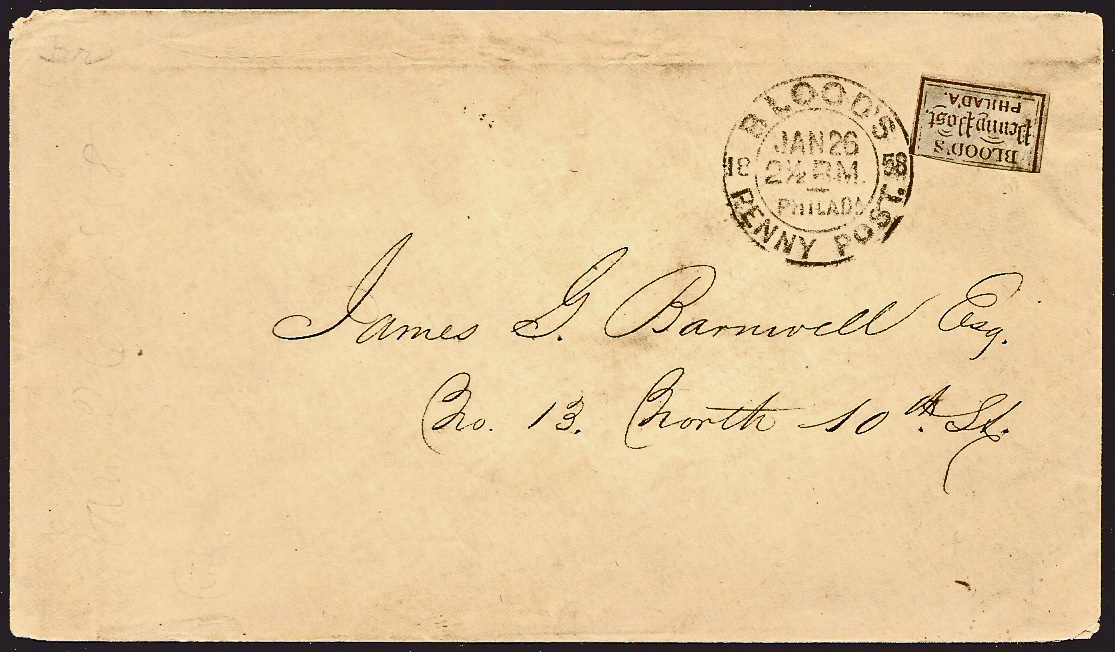 BLOOD'S
JAN 26
18 58
2½ P.M.
PHILADA
PENNY POST.
BLOOD'S
Penny Post.
PHILAD'A.
James G. Barnwell Esq.
No. 13. North 10th. St.